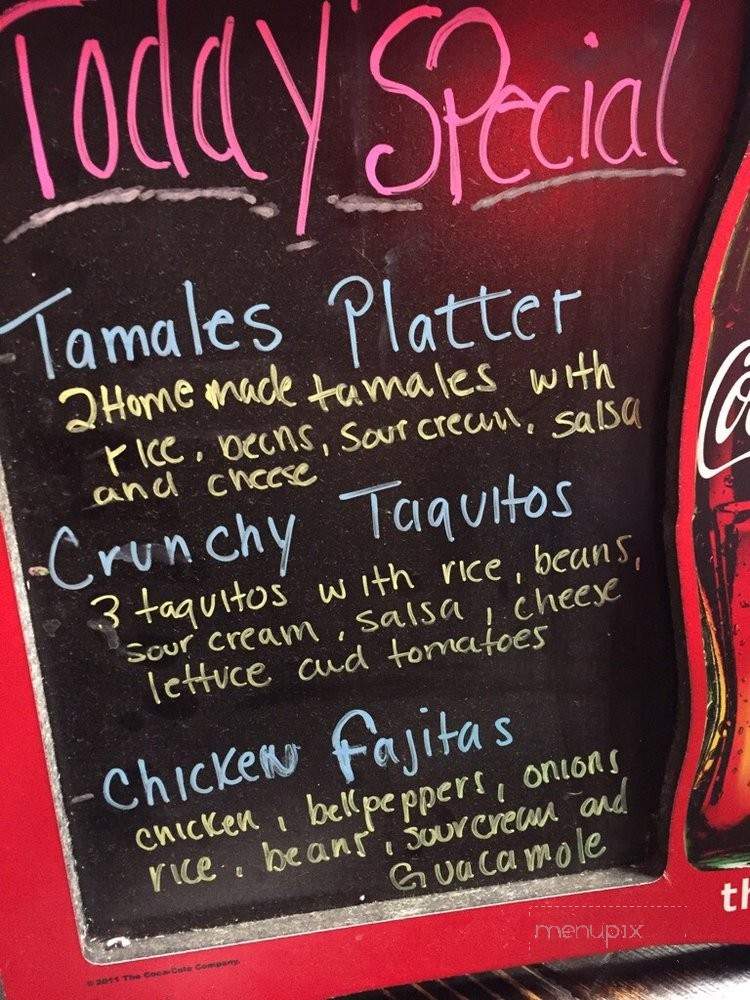 Today's Special
Tamales Platter
2 Home made tamales with
rice, beans, sour cream, salsa
and cheese
- Crunchy Taquitos
3 taquitos with rice, beans,
sour cream, salsa, cheese
lettuce and tomatoes
- Chicken Fajitas
chicken, bellpeppers, onions
rice, beans, sour cream and
Guacamole
© 2011 The Coca-Cola Company.
menupix